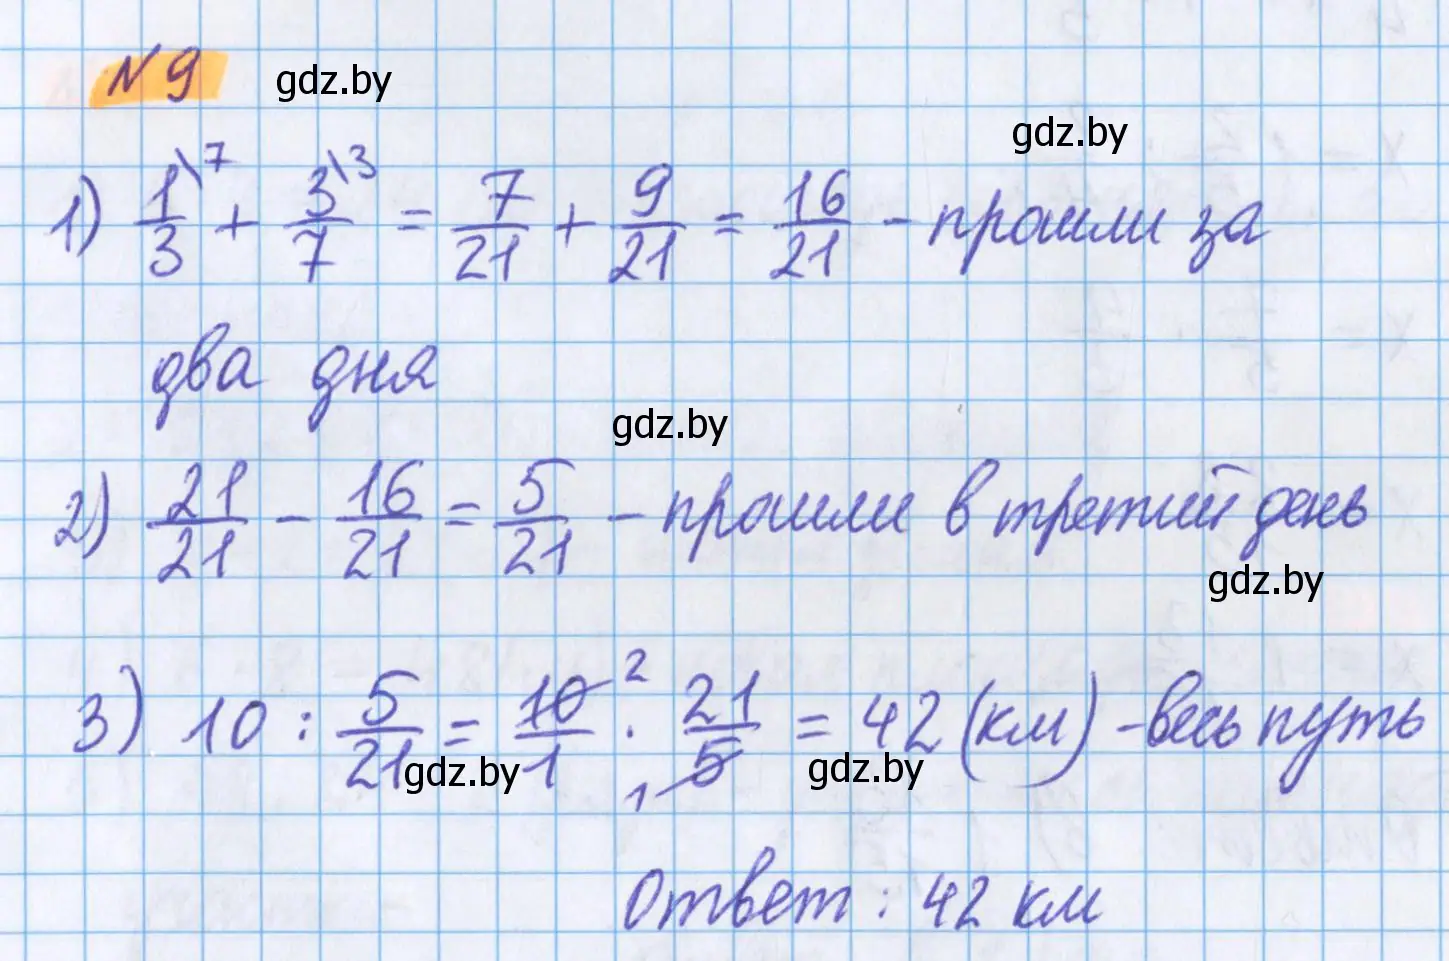 №9 gdz.by
gdz.by
1) 1/3\7 + 3/7\3 = 7/21 + 9/21 = 16/21 - прошли за
два дня
gdz.by
2) 21/21 - 16/21 = 5/21 - прошли в третий день
gdz.by
3) 10 : 5/21 = 10/1 2 · 21/5 1 = 42 (км) - весь путь
gdz.by gdz.by
Ответ: 42 км